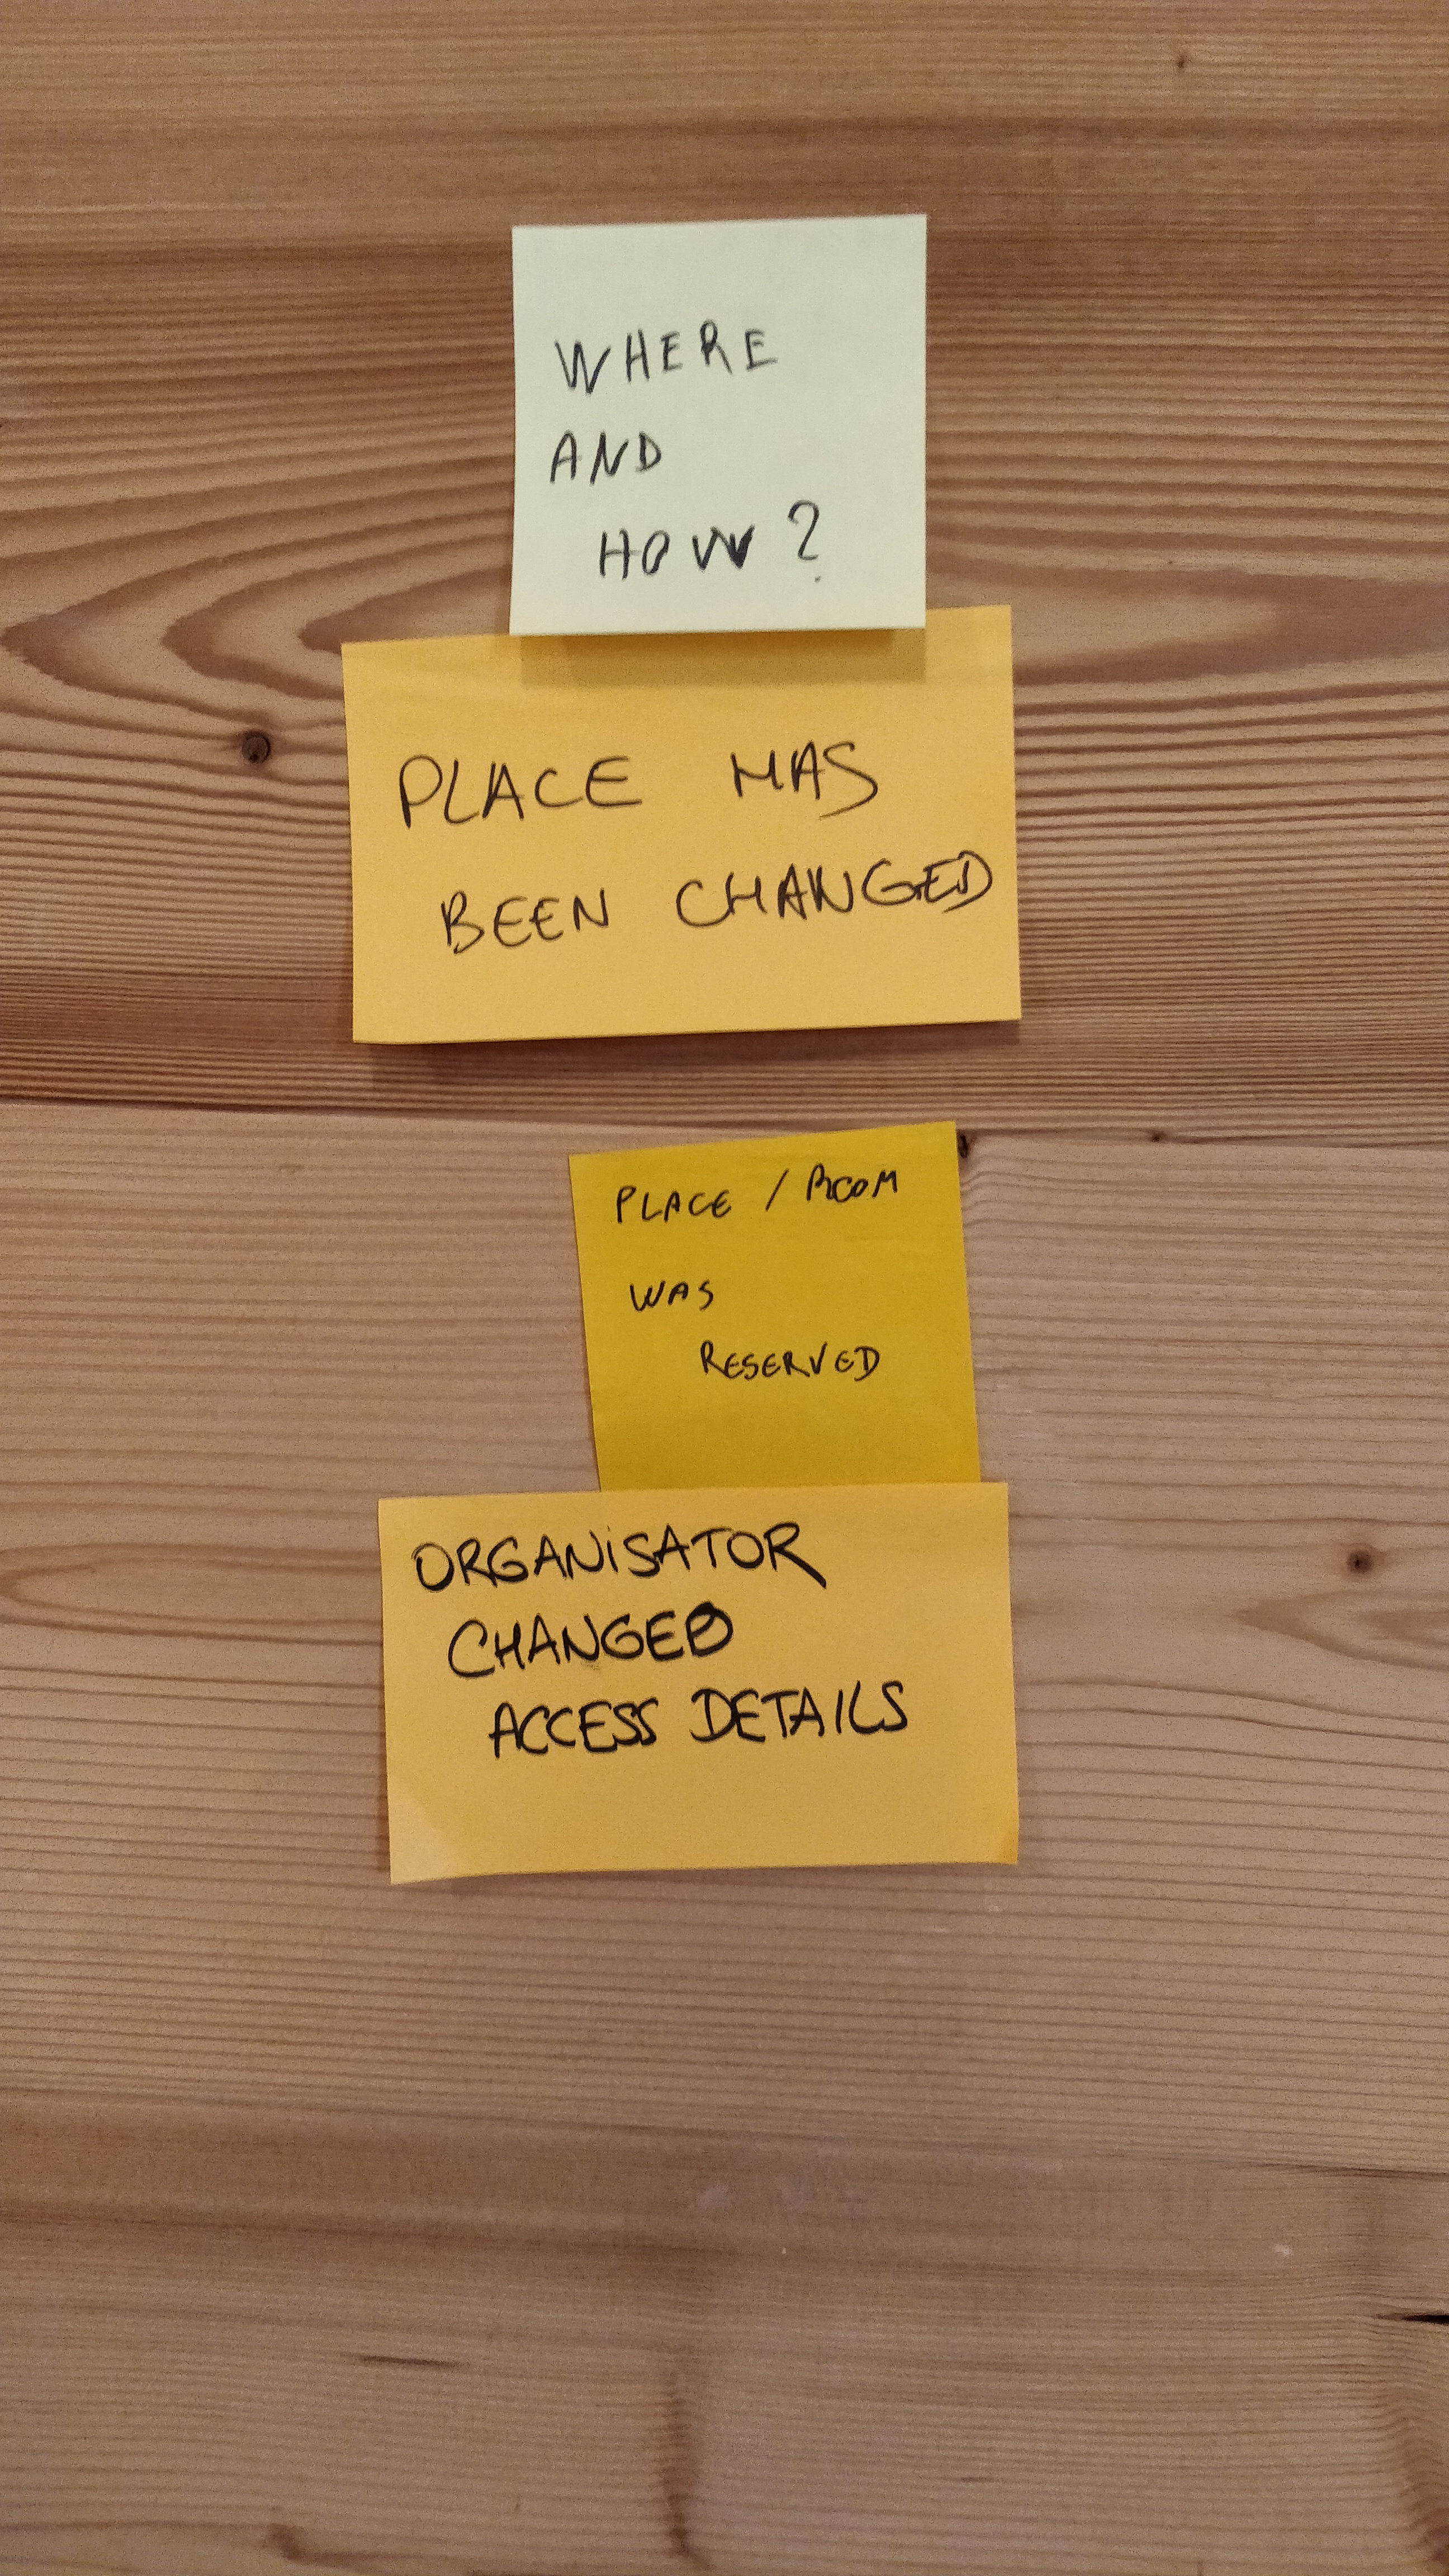 WHERE
AND
HOW?
PLACE HAS
BEEN CHANGED
PLACE / ROOM
WAS
RESERVED
ORGANiSATOR
CHANGED
ACCESS DETAILS